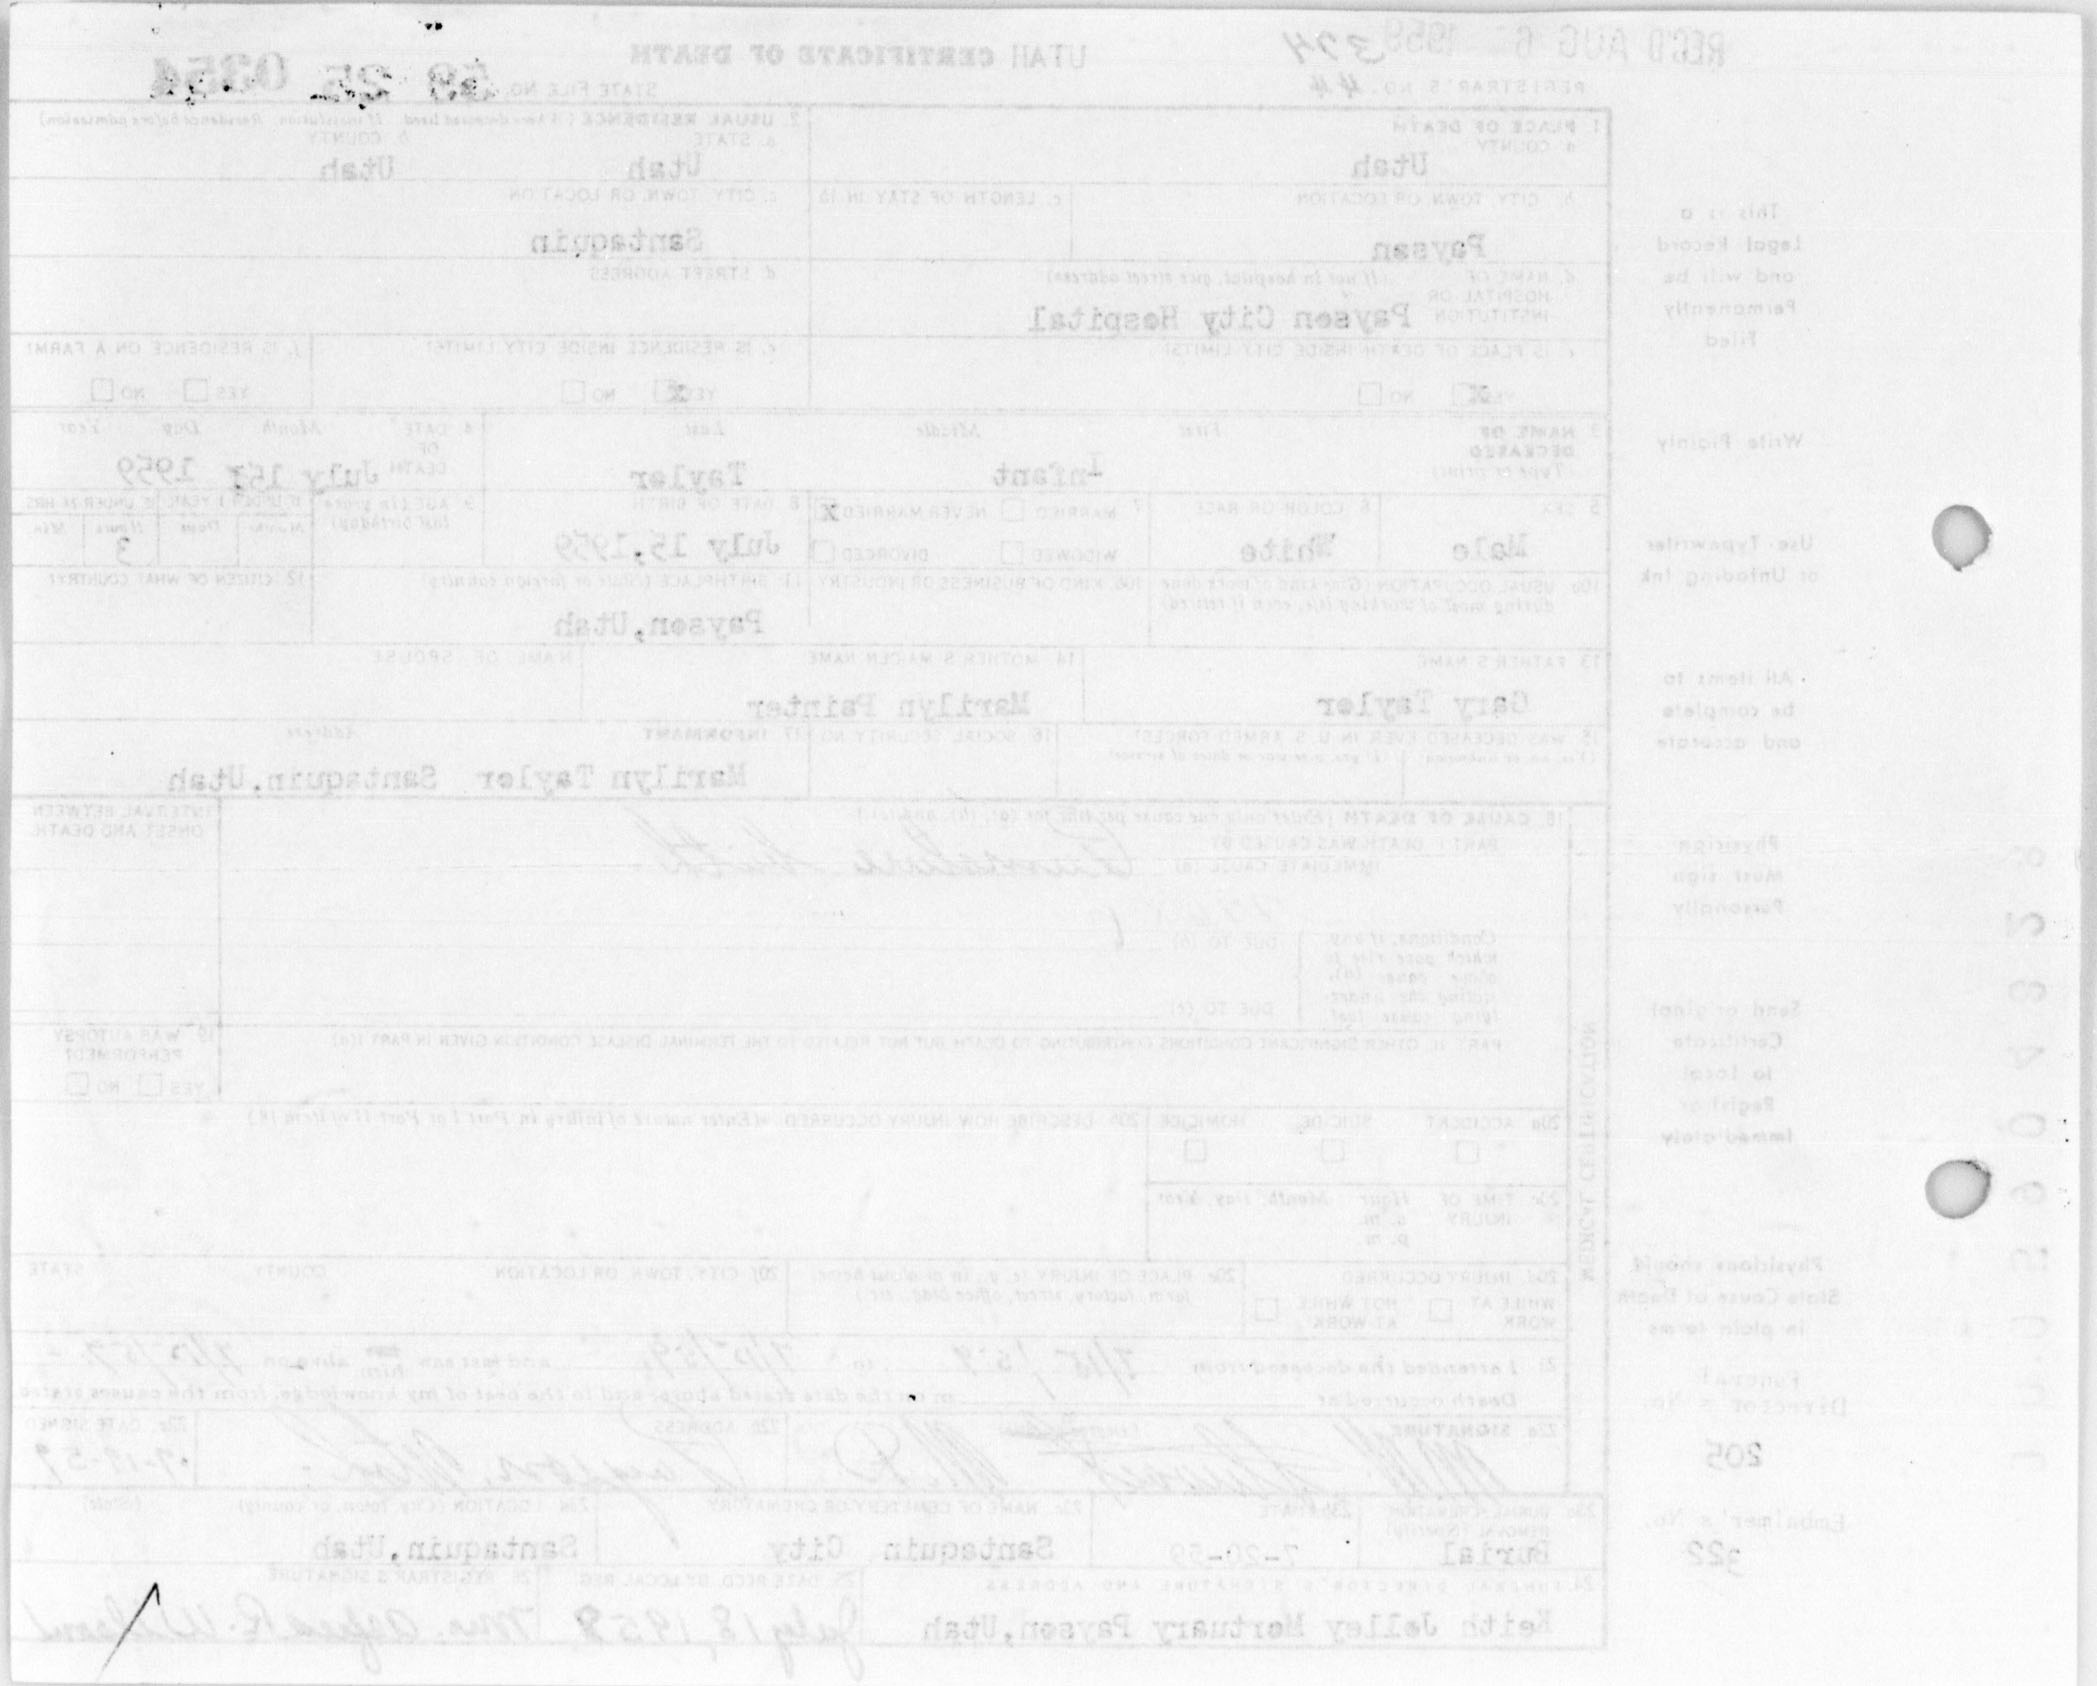 REC'D AUG 6 1959 374
UTAH CERTIFICATE OF DEATH
REGISTRAR'S NO. 44
STATE FILE NO. 59 25 0354
1 PLACE OF DEATH
a COUNTY
Utah
2. USUAL RESIDENCE (Where deceased lived. If institution, Residence before admission)
a. STATE
Utah
b. COUNTY
Utah
b. CITY, TOWN, OR LOCATION
Payson
c. LENGTH OF STAY IN 1b
c. CITY, TOWN, OR LOCATION
Santaquin
d. NAME OF HOSPITAL OR INSTITUTION (If not in hospital, give street address)
Payson City Hospital
d. STREET ADDRESS
e. IS PLACE OF DEATH INSIDE CITY LIMITS?
YES X NO
e. IS RESIDENCE INSIDE CITY LIMITS?
YES X NO
f. IS RESIDENCE ON A FARM?
YES NO
3 NAME OF DECEASED
(Type or print)
First Middle Last
Infant Tayler
4. DATE OF DEATH
Month Day Year
July 15, 1959
5 SEX
Male
6 COLOR OR RACE
White
7 MARRIED NEVER MARRIED X
WIDOWED DIVORCED
8 DATE OF BIRTH
July 15, 1959
9 AGE (In years last birthday)
IF UNDER 1 YEAR IF UNDER 24 HRS
Months Days Hours Min
3
10a USUAL OCCUPATION (Give kind of work done during most of working life, even if retired)
10b KIND OF BUSINESS OR INDUSTRY
11 BIRTHPLACE (State or foreign country)
Payson, Utah
12 CITIZEN OF WHAT COUNTRY?
13 FATHER'S NAME
Gary Tayler
14 MOTHER'S MAIDEN NAME
Marilyn Painter
NAME OF SPOUSE
15 WAS DECEASED EVER IN U. S. ARMED FORCES?
(Yes, no, or unknown) (If yes, give war or dates of service)
16 SOCIAL SECURITY NO
17 INFORMANT Address
Marilyn Tayler Santaquin, Utah
18. CAUSE OF DEATH (Enter only one cause per line for (a), (b), and (c))
PART I DEATH WAS CAUSED BY
IMMEDIATE CAUSE (a) Premature birth
INTERVAL BETWEEN ONSET AND DEATH
Conditions, if any which gave rise to above cause (a), stating the under-lying cause last
DUE TO (b)
DUE TO (c)
PART II OTHER SIGNIFICANT CONDITIONS CONTRIBUTING TO DEATH BUT NOT RELATED TO THE TERMINAL DISEASE CONDITION GIVEN IN PART I(a)
19 WAS AUTOPSY PERFORMED?
YES NO
20a ACCIDENT SUICIDE HOMICIDE
20b DESCRIBE HOW INJURY OCCURRED (Enter nature of injury in Part I or Part II of item 18)
20c TIME OF INJURY Hour Month, Day, Year
a. m.
p. m.
20d INJURY OCCURRED
WHILE AT WORK NOT WHILE AT WORK
20e PLACE OF INJURY (e. g., in or about home, farm, factory, street, office bldg., etc.)
20f CITY, TOWN, OR LOCATION COUNTY STATE
21 I attended the deceased from 7/15/59 to 7/15/59 and last saw him alive on 7/15/59
Death occurred at m on the date stated above; and to the best of my knowledge, from the causes stated
22a SIGNATURE
M. D.
22b ADDRESS
Payson, Utah
22c. DATE SIGNED
7-19-59
23a BURIAL, CREMATION, REMOVAL (Specify)
Burial
23b DATE
7-20-59
23c NAME OF CEMETERY OR CREMATORY
Santaquin City
23d LOCATION (City, town, or county) (State)
Santaquin, Utah
24. FUNERAL DIRECTOR'S SIGNATURE AND ADDRESS
Keith Jolley Mortuary Payson, Utah
25 DATE REC'D BY LOCAL REG
July 18, 1959
26 REGISTRAR'S SIGNATURE
MEDICAL CERTIFICATION
This is a
Legal Record
and will be
Permanently
Filed
Write Plainly
Use Typewriter
or Unfading Ink
All items to
be complete
and accurate
Physician
Must sign
Personally
Send original
Certificate
to Local
Registrar
Immediately
Physicians should
State Cause of Death
in plain terms
Funeral
Director's No.
205
Embalmer's No.
322